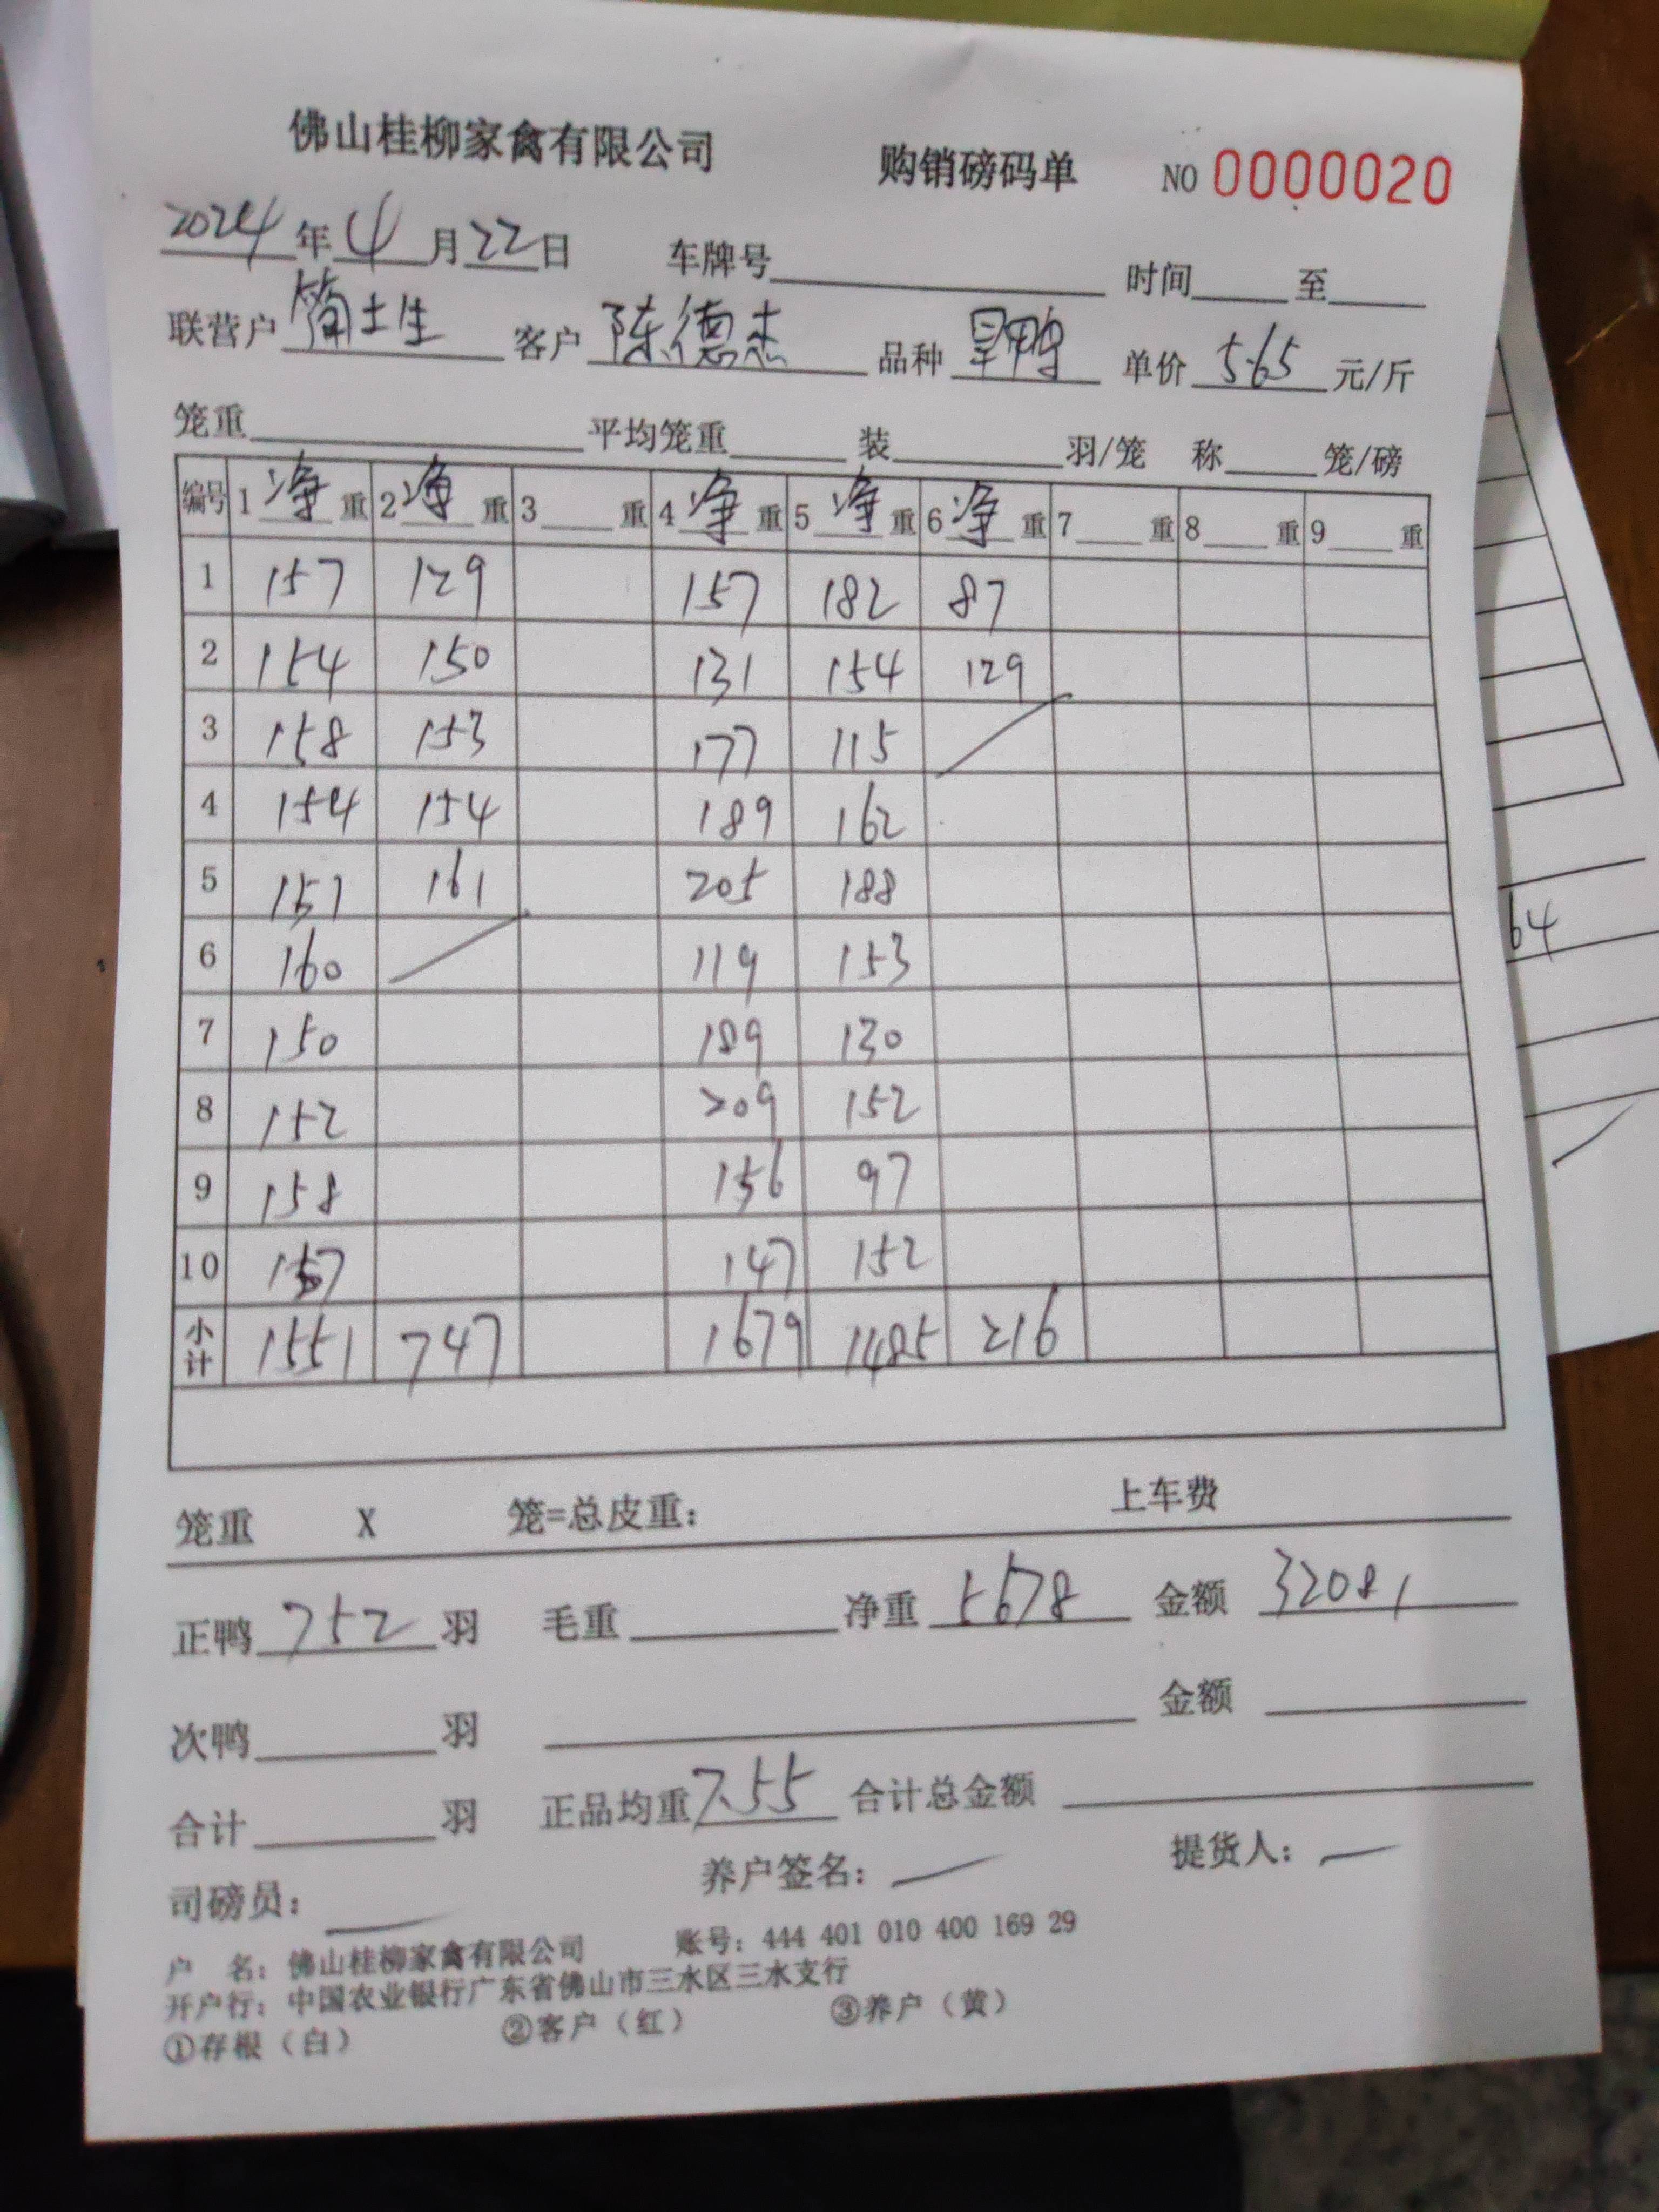 佛山桂柳家禽有限公司 购销磅码单 NO 0000020
2024年4月22日 车牌号 时间 至
联营户 简土生 客户 陈德杰 品种 旱鸭 单价 5.65 元/斤
笼重 平均笼重 装 羽/笼 称 笼/磅
编号 1 净 重 2 净 重 3 重 4 净 重 5 净 重 6 净 重 7 重 8 重 9 重
1 157 129 157 182 87
2 154 150 131 154 129
3 158 153 177 115
4 154 154 189 162
5 151 161 205 188
6 160 119 153
7 150 189 130
8 152 209 152
9 158 156 97
10 157 147 152
小计 1551 747 1679 1485 216
笼重 X 笼=总皮重: 上车费
正鸭 752 羽 毛重 净重 5678 金额 32081
次鸭 羽 金额
合计 羽 正品均重 7.55 合计总金额
司磅员: 养户签名: 提货人:
户 名: 佛山桂柳家禽有限公司 账号: 444 401 010 400 169 29
开户行: 中国农业银行广东省佛山市三水区三水支行
①存根（白） ②客户（红） ③养户（黄）
64